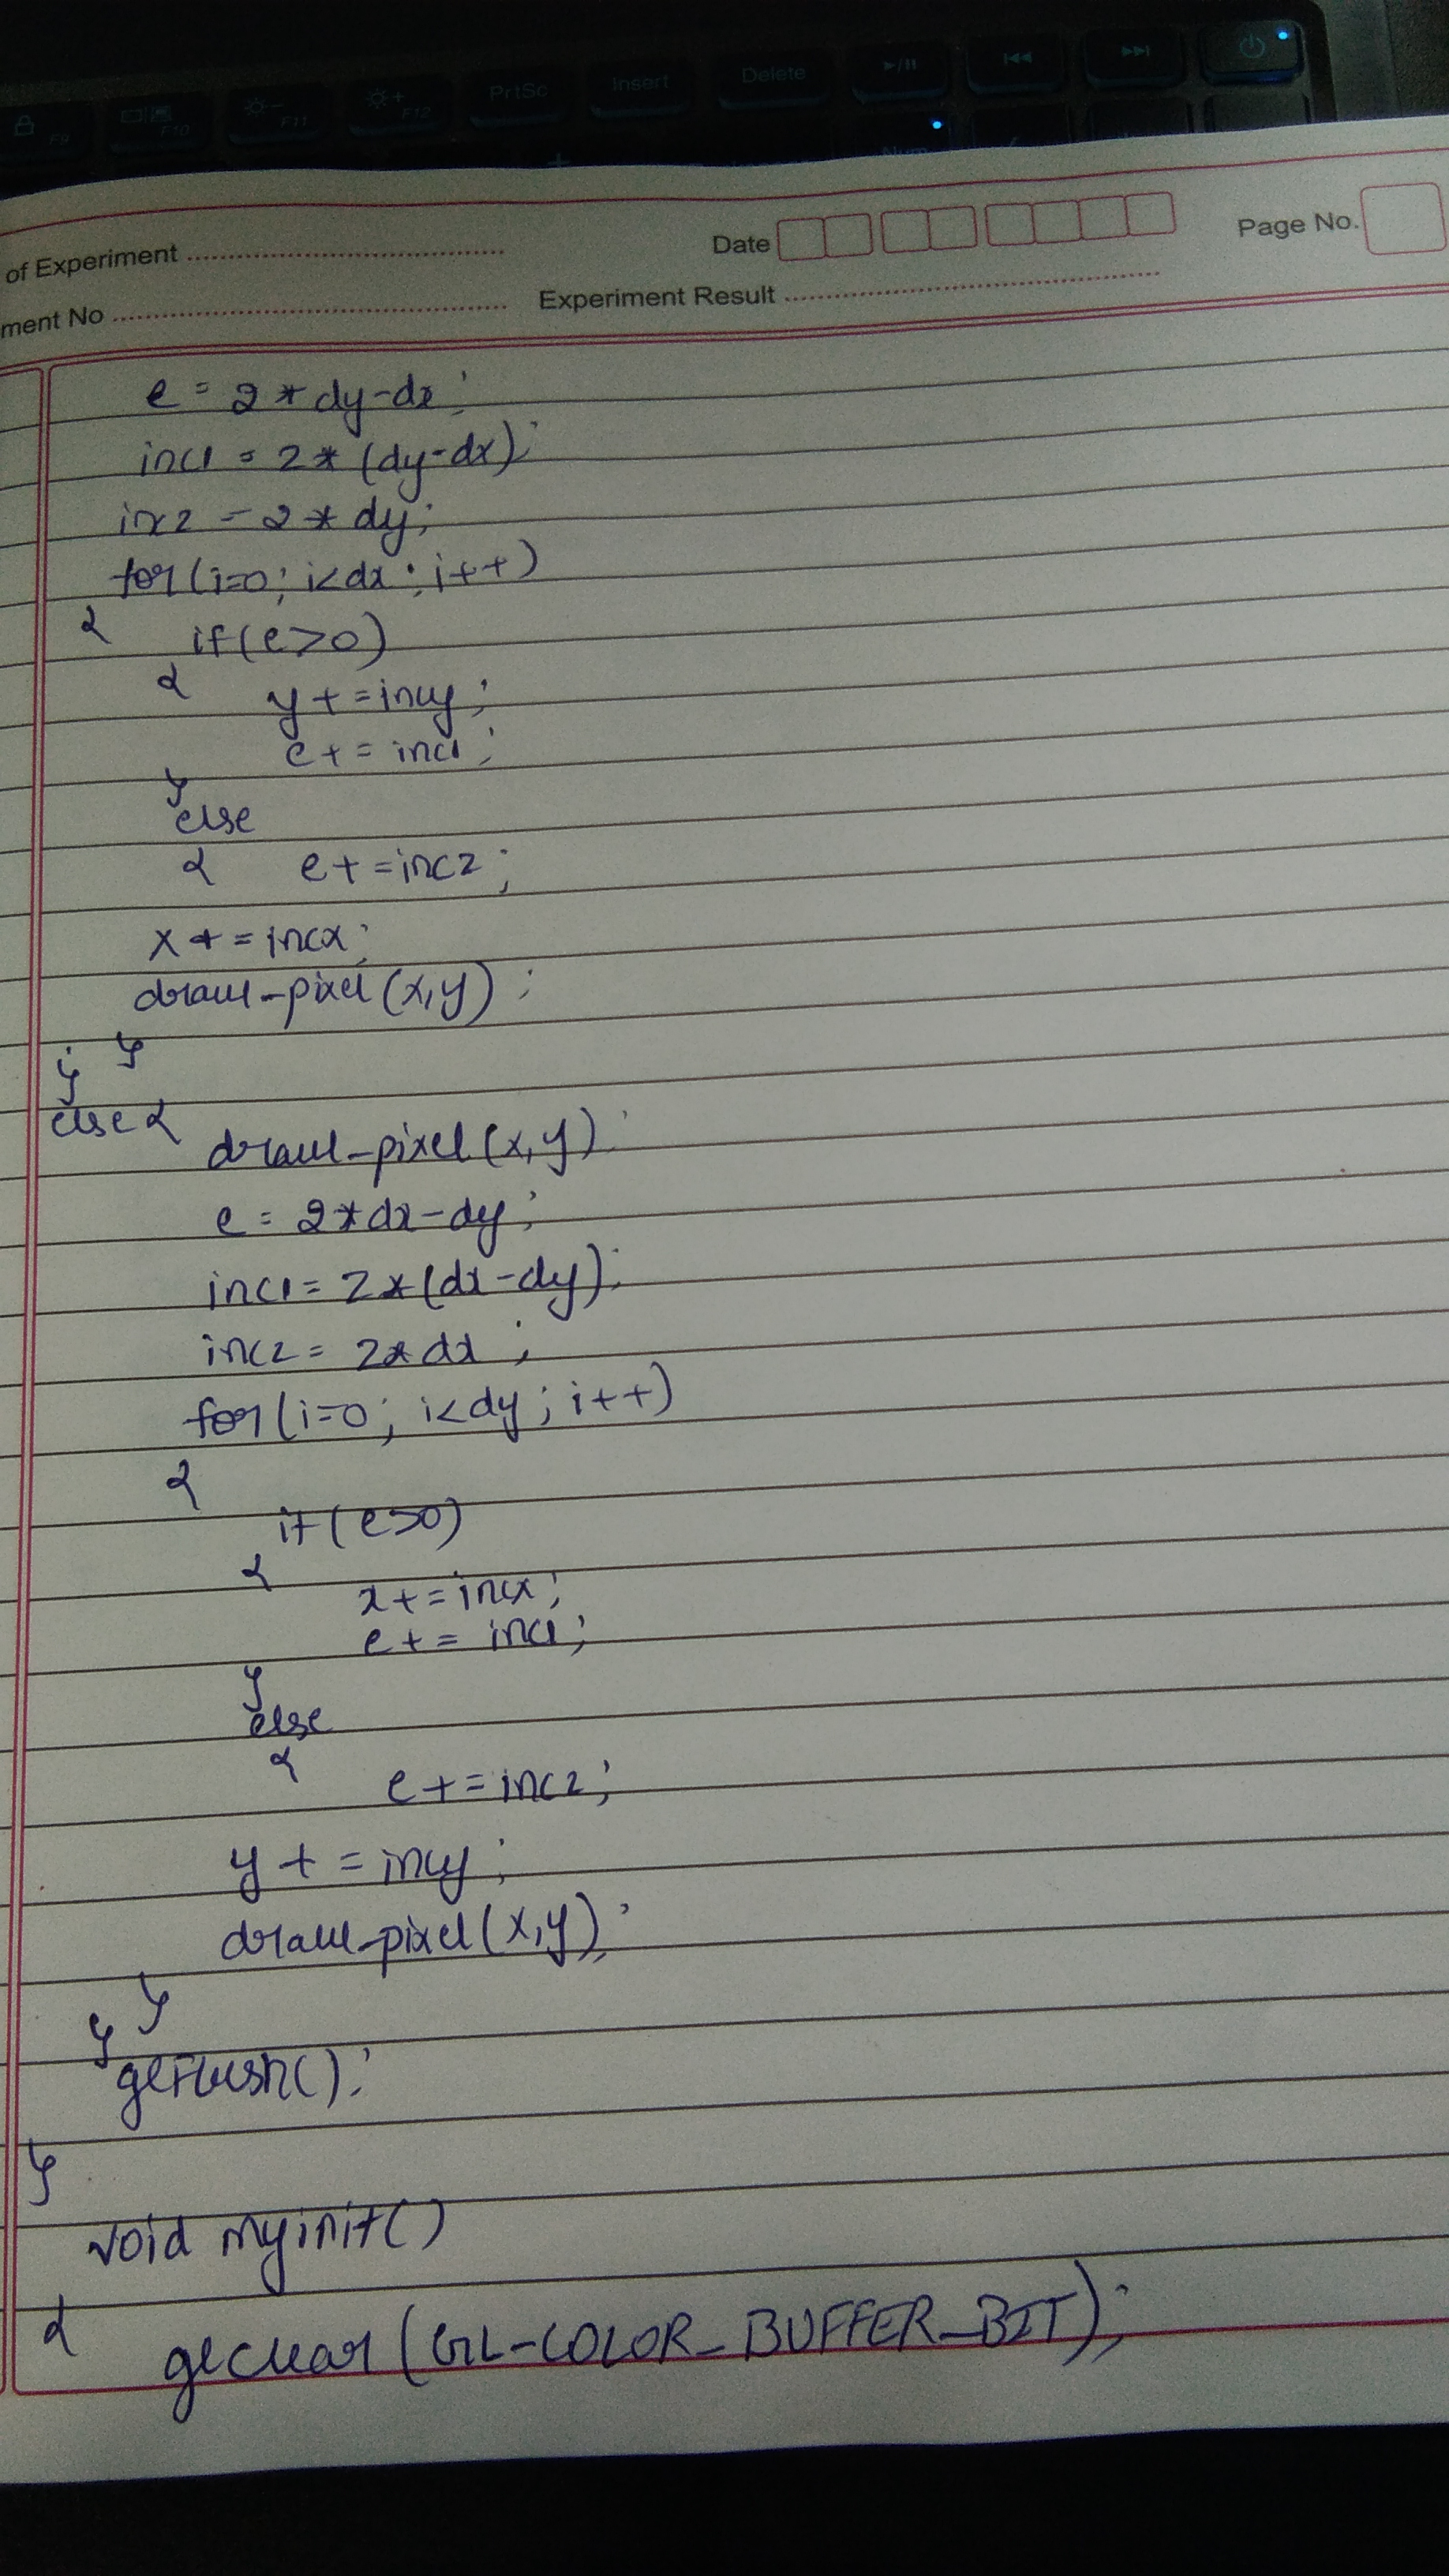 PrtSc
Insert
Delete
F9
F10
F11
F12
Num
of Experiment
Date
Page No.
ment No
Experiment Result
e = 2*dy-dx;
inc1 = 2*(dy-dx);
inc2 = 2*dy;
for(i=0; i<dx; i++)
{ if(e>0)
{ y+=incy;
e+=inc1;
}
else
{ e+=inc2;
x+=incx;
draw-pixel(x,y);
}
}
else{
draw-pixel(x,y);
e = 2*dx-dy;
inc1 = 2*(dx-dy);
inc2 = 2*dx;
for(i=0; i<dy; i++)
{
if(e>0)
{
x+=incx;
e+=inc1;
}
else
{
e+=inc2;
y+=incy;
draw-pixel(x,y);
}
}
glFlush();
}
void myinit()
{
glclear(GL-COLOR_BUFFER_BIT);